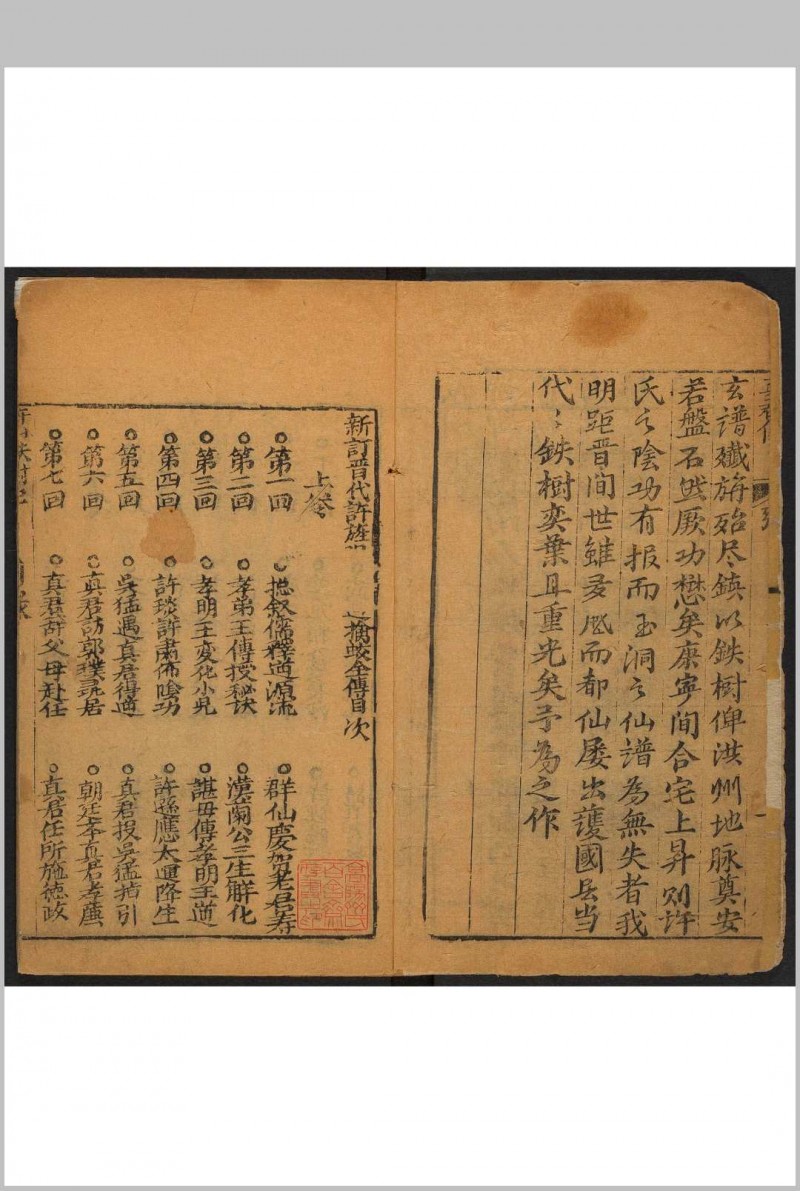 玄譜殱旃殆尽鎮以鉄樹俾洪州地脉奠安
若盤石然厥功懋矣康寧間合宅上昇则許
氏之陰功有报而玉洞之仙譜為無失者我
明距晋間世雖
而都仙屡出護國兵当
代〻鉄樹奕葉且重光矣予為之作
新訂晋代許旌
擒蛟全傳目次
上卷
第一回 揔叙儒釋道源流 群仙慶賀老君寿
第二回 孝弟王傳授秘訣 漢蘭公三生解化
第三回 孝明王变化小兒 諶母傳孝明王道
第四回 許琰許肅佈陰功 許遜應太運降生
第五回 吳猛遇真君得道 真君投吳猛指引
第六回 真君訪郭璞尋居 朝廷
真君孝廉
第七回 真君辞父母赴任 真君任所施德政